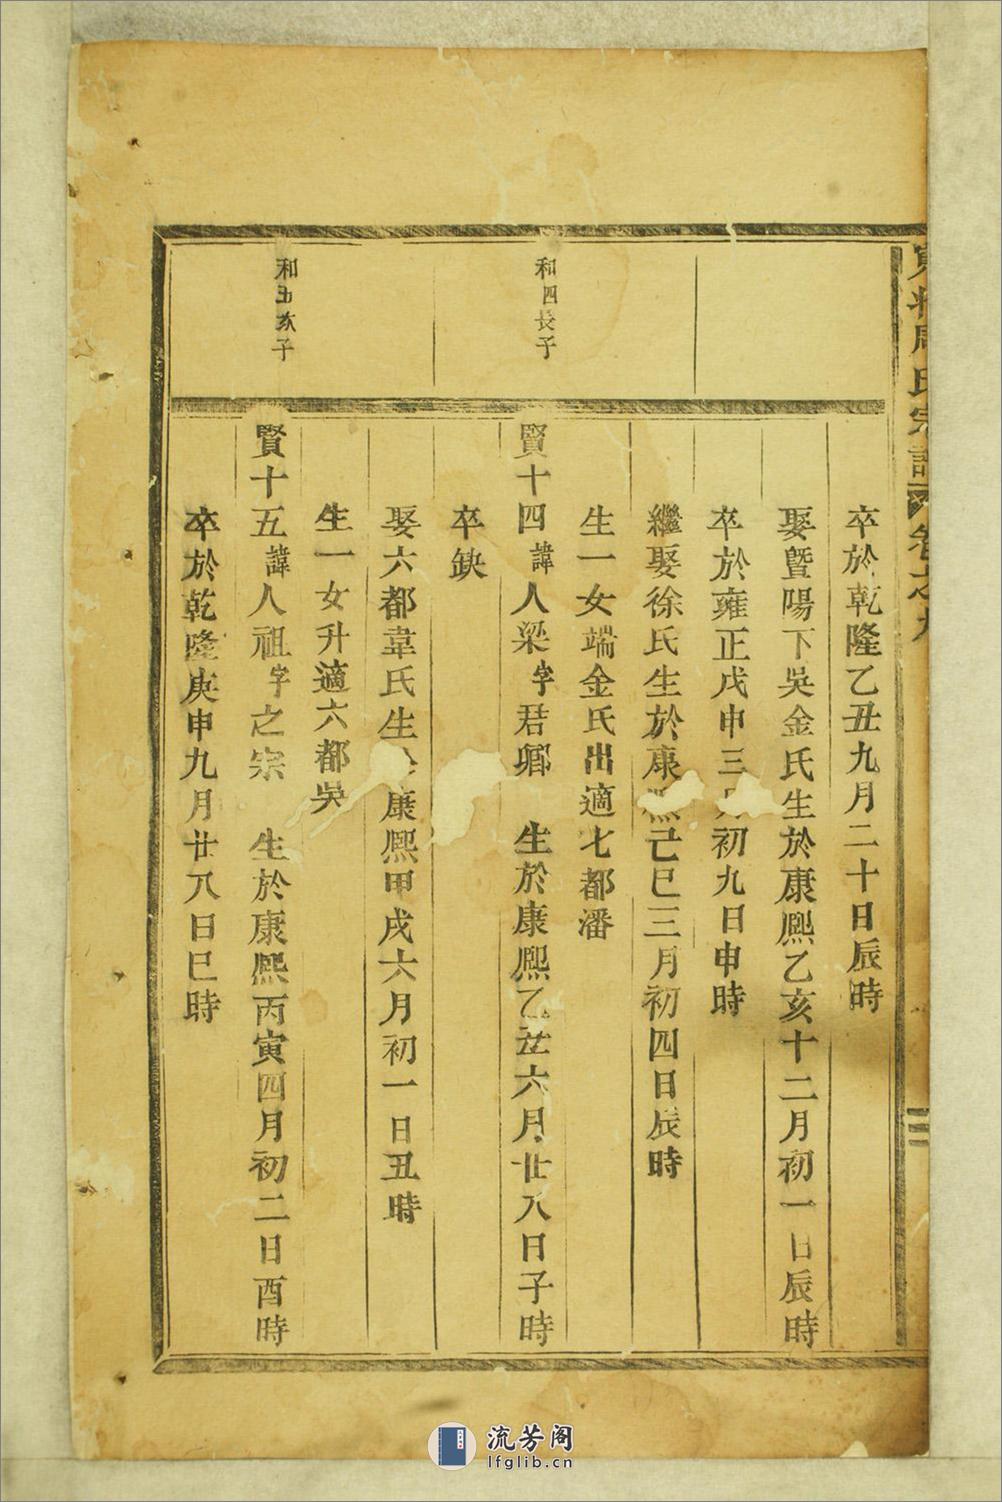 周氏宗譜 卷之九
卒於乾隆乙丑九月二十日辰時
娶暨陽下吳金氏生於康熙乙亥十二月初一日辰時
卒於雍正戊申三月初九日申時
繼娶徐氏生於康熙己巳三月初四日辰時
生一女端金氏出適七都潘
和四長子
賢十四諱人梁字君鄉 生於康熙乙丑六月廿八日子時
卒缺
娶六都韋氏生於康熙甲戌六月初一日丑時
生一女升適六都吳
和五次子
賢十五諱人祖字之宗 生於康熙丙寅四月初二日酉時
卒於乾隆庚申九月廿八日巳時
流芳阁
lfglib.cn